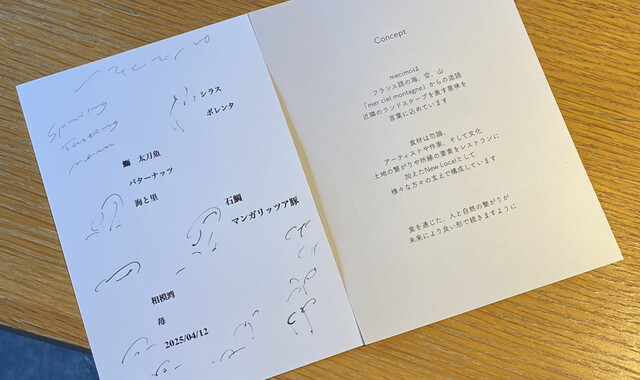 Spring
Tasting
menu
シラス
ポレンタ
太刀魚
バターナッツ
海と里
石鯛
マンガリッツア豚
相模湾
苺
2025/04/12
Concept
mecimoは
フランス語の海、空、山
「mer ciel montagne」からの造語
近隣のランドスケープを表す意味を
言葉に込めています
食材は勿論、
アーティストや作家、そして文化
土地の繋がりや所縁の要素をレストランに
加えたNew Localとして
様々な方々の支えで構成しています
食を通じた、人と自然の繋がりが
未来により良い形で続きますように